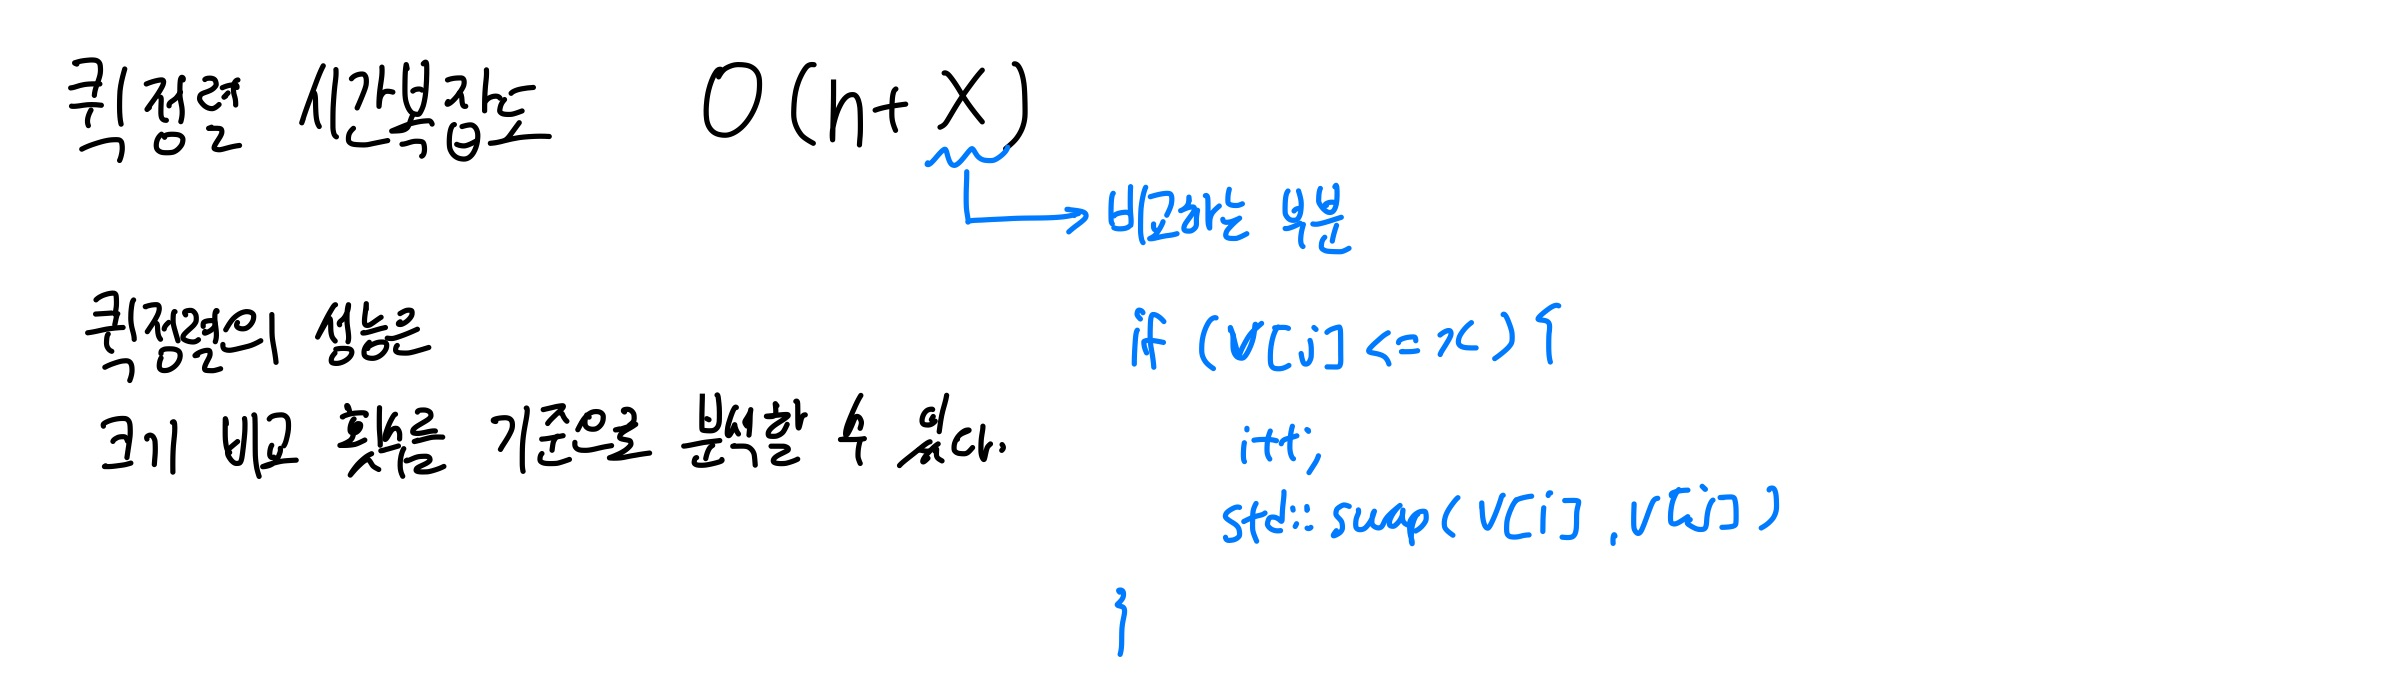 퀵정렬 시간복잡도 O(n+X)
비교하는 부분
퀵정렬의 성능은
크기 비교 횟수를 기준으로 분석할 수 있다.
if (V[j] <= x) {
i++;
std::swap(V[i], V[j])
}